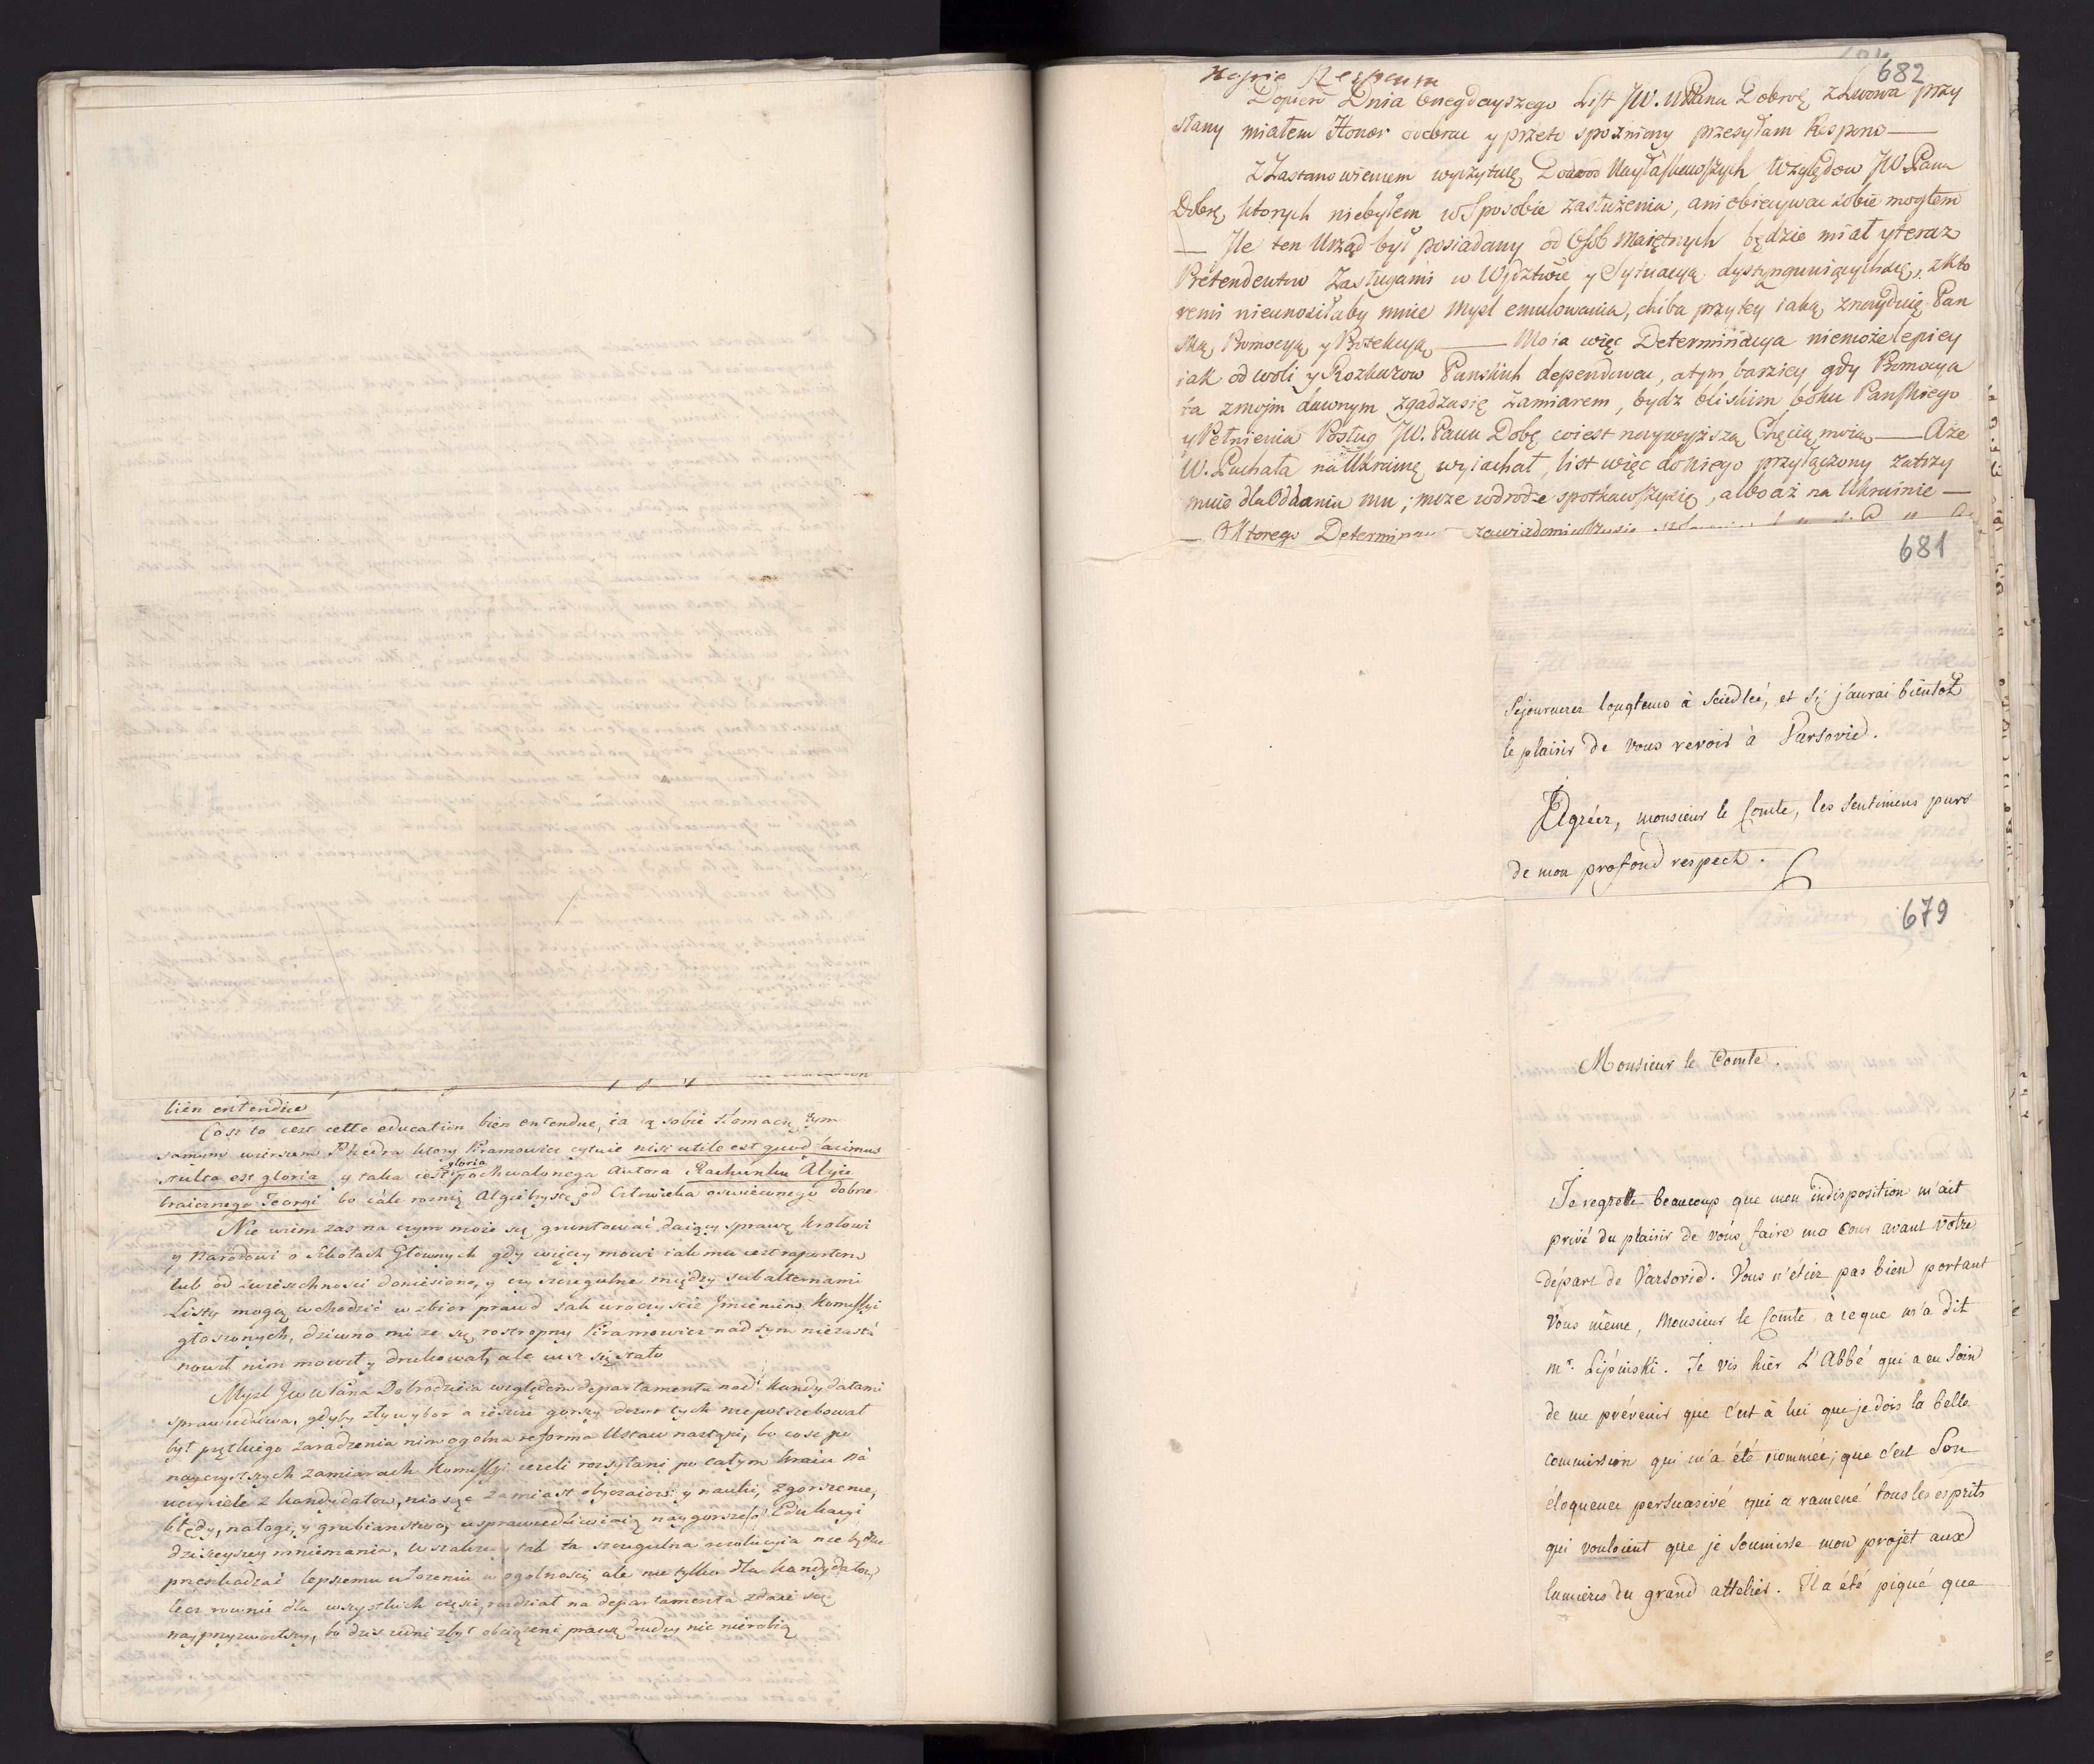 bien entendue
Cosz to jest cette education bien entendue, ia ią sobie tłomaczę tym
samym wierszem Phedra ktory Piramowicz cytuie nisi utile est quod facimus
stulta est gloria y taka iest gloria pochwalonego Autora Rachunku Algie
braicznego Teoryi bo cale rożnią Algiebrystę od Człowieka oswieconego dobrze
Nie wiem zas na czym moze się gruntowac daiący sprawę Krolowi
y Narodowi o szkołach Głownych gdy więcey mowi iak mu iest raportem
lub od zwierzchnosci doniesiono, y czy szczegulne między subalternami
Listy mogą wchodzić w zbior prawd tak uroczyscie Jmieniem Komissyi
głoszonych, dziwno mi ze się rostropny Piramowicz nad tym niezasta
nowił nim mowił y drukował, ale iusz się stało
Mysl Jw WPana Dobrodzieia względem departamentu nad Kandydatami
sprawiedliwa, gdyby zły wybor a ieszcze gorszy dozor tych niepotrzebował
był prętkiego zaradzenia nim ogolna reforma Ustaw nastąpi, bo cosz po
nayczystszych zamiarach Komissyi iezeli rozsyłani po całym kraiu na
uczyciele z kandydatow, niosąc zamiast obyczaiow y nauki, zgorszenie,
błędy, nałogi, y grubianstwo, usprawiedliwiaią naygorsze o Edukacyi
dzisieyszey mniemania, wszakze y tak ta szczegulna rezolucyia nie będzie
przeszkadzać lepszemu ułozeniu w ogolnosci ale nie tylko dla kandydatow
lecz rownie dla wszystkich części, rozdział na departamenta zdaie się
nayprzyzwoitszy, bo dzis iedni zbyt obciązeni pracą drudzy nic nierobią
682
Kopia Responsu
Dopiero Dnia Onegdayszego List JW. WPana Dobrę z Lwowa przy
słany miałem Honor odebrac y przeto spozniony przesyłam Respons —
Z Zastanowieniem wyczytuię Dowod Nayłaskawszych Względow JW. Pana
Dobrę, ktorych niebyłem w Sposobie zasłużenia, ani obiecywac sobie mogłem
— Jle ten Urząd był posiadany od Osob Maiętnych będzie miał y teraz
Pretendentow Zasługami w Wojdztwie y Sytuacyą dystyngwuiących się, z kto
remi nieunosiłaby mnie Mysl emulowania, chiba przy tey iaką znayduię Pan
ską Promocyą y Protekcyą — Moia więc Determinacya niemoże lepiey
iak od woli y Rozkazow Panskich dependowac, a tym barziey gdy Promocya
ta z moim dawnym zgadza się Zamiarem, bydz bliskim boku Panskiego
y Pełnienia Posług JW. Pana Dobę co iest naywyższą Chęcią moią — A że
W. Puchała na Ukrainę wyiachał, list więc do niego przyłączony zatrzy
muię dla Oddania mu; może w drodze spotkawszy się, albo aż na Ukrainie —
— O ktorego Determinacyi zawiadomiwszy się
681
séjournerez longtems à Siedlcé, et si j'aurai bientot
le plaisir de vous revoir à Varsovie.
Agréez, monsieur le Comte, les sentimens purs
de mon profond respect.
679
Monsieur le Comte.
Je regrette beaucoup que mon indisposition m'ait
privé du plaisir de vous faire ma cour avant votre
départ de Varsovie. Vous n'étiez pas bien portant
vous même, Monsieur le Comte, à ce que m'a dit
mr. Lipinski. Je vis hier L'Abbé qui a eu soin
de me prévenir que c'est à lui que je dois la belle
commission qui m'a été nommée; que c'est son
éloquence persuasive qui a ramené tous les esprits
qui vouloient que je soumisse mon projet aux
lumieres du grand attelier. Il a été piqué que